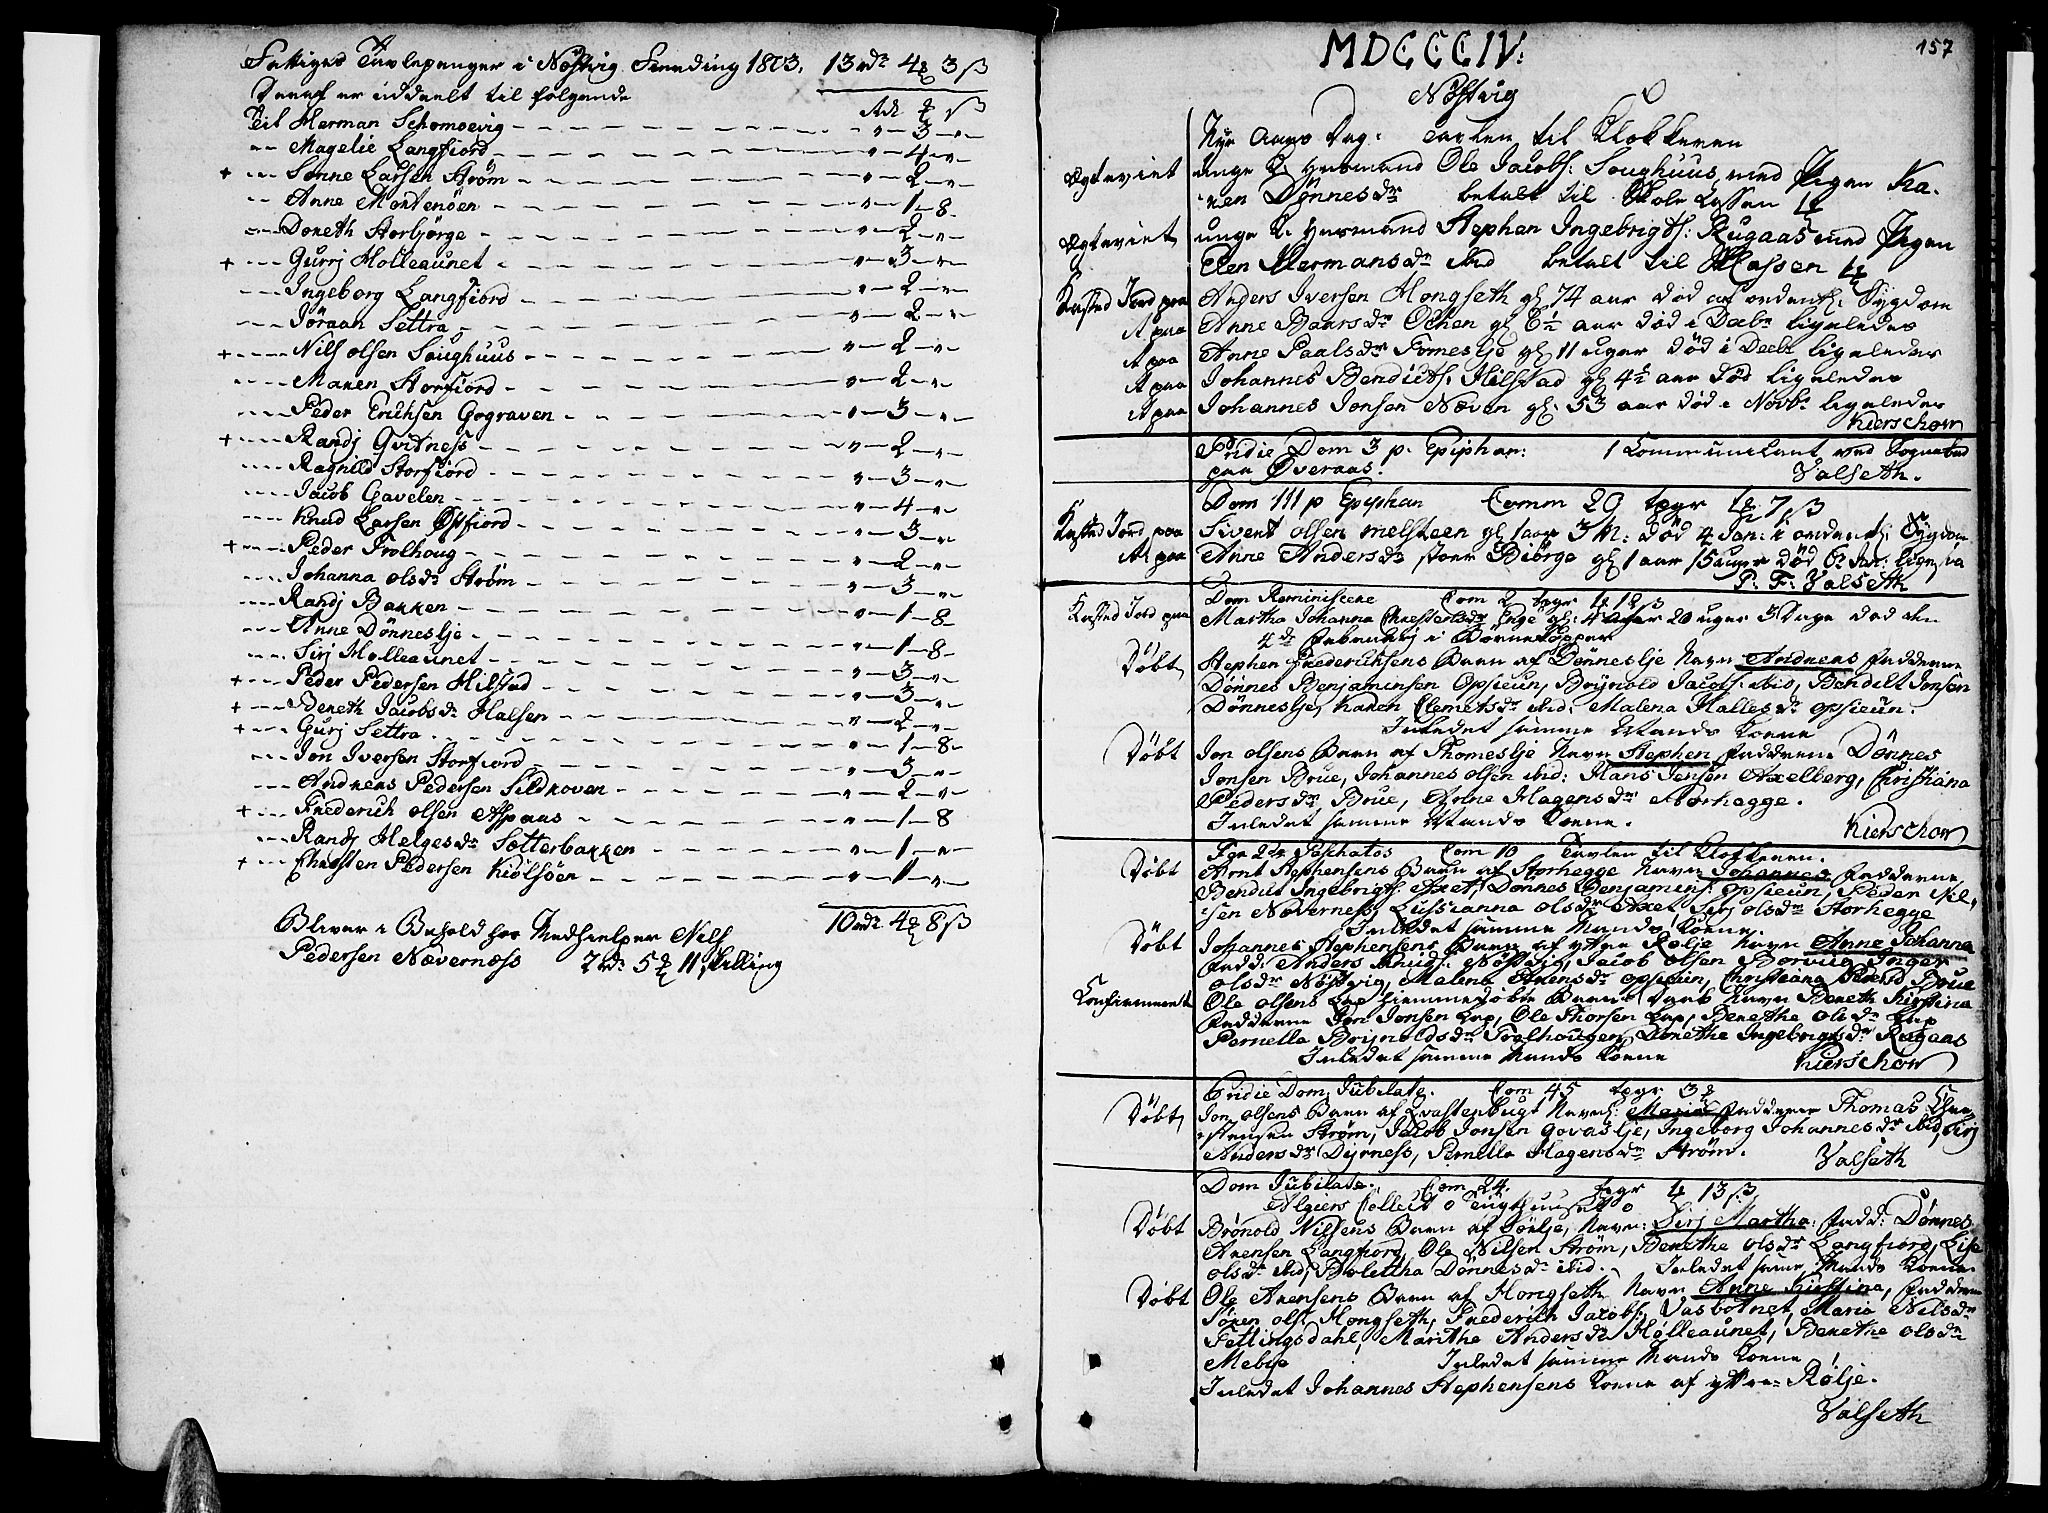 Fattiges Tavlepenger i Nøstvig Sending 1803. 13 rdr 4 3 ß
Deraf er uddeelt til følgende
Rdr ß
Til Herman Schomsevig - 3 -
Magelie Langfiord - 4 -
+ Sønne Larsen Strøm - 2 -
Anne Mortenøen - 1 - 8
Doreth Storbjørge - 2 -
+ Gurrj Holleaunet - 3 -
Ingeborg Langfiord - 2 -
Jøraan Settra - 2 -
+ Nils Olsen Soughuus - 2 -
Maren Storfiord - 2 -
Peder Erichsen Gograven - 3 -
+ Randj Gvitness - 2 -
Ragnild Storfiord - 3 -
Jacob Gavelen - 4 -
Knud Larsen Opfiord - 3 -
+ Peder Trolhoug - 2 -
Johanna Olsdr Strøm - 3 -
Randj Bakken - 1 - 8
Anne Dønneslje - 1 - 8
Sirj Holleaunet - 3 -
+ Peder Pedersen Hilstad - 3 -
+ Bereth Jacobsdr Halsen - 2 -
+ Gurj Settra - 1 - 8
Jon Iversen Storfiord - 3 -
Andreas Pedersen Sildroven - 2 -
+ Frederich Olsen Aspaas - 1 - 8
Randj Helgesdr Sætterbakken - 1 -
+ Christen Pedersen Kiølsøen - 1 -
10 rdr 4 8 ß
Bliver i Behold hos Medhielper Nils
Pedersen Nævernæss 2 rdr 5 11 skilling
157
MDCCCIV:
Nøstvig
Nye Aars Dag: Tavlen til Klokkeren
Ægteviet unge K. Huusmand Ole Jacobs: Soughuus med Pigen Ka-
ren Dønnesdr betalt til Skole Cassen
Ægteviet unge K. Huusmand Stephen Ingebrigts: Rugaas med Pigen
Elen Hermansdr ibid betalt til Cassen
Kasted Jord paa Anders Iversen Hongseth gl 74 aar død af ordentl: Sygdom
A paa Anne Baarsdr Ochen gl 6½ aar død i Decbr ligeledes
A paa Anne Paalsdr Fomeslje gl 11 uger død i Decbr ligeledes
A paa Johannes Bendicts: Hilstad gl 4½ aar død ligeledes
A paa Johannes Jonsen Næven gl: 53 aar død i Novbr ligeledes
Kierschow
Pridie Dom 3 p. Epiphan: 1 Communicant ved Sognebud
paa Øveraas.
Valseth.
Dom III p Epyphan Comm 20 tgr 7 ß
Kasted Jord paa Sivert Olsen Melsteen gl 1 aar 3 M: død 4 Jan: i ordentl: Sygdom
A paa Anne Andersdr store Biørge gl 1 aar 15 uger død 6 Jan: ligesaa
P: F: Valseth
Dom Reminiscere Com 2 tgr 12 ß
Kasted Jord paa Martha Johanna Christensdr Enge gl: 4 aar 20 uger 3 Dage død den
4de Februarij i Børnekopper
Døbt Stephen Frederichsens Barn af Dønneslje Navn Andreas Fadderne
Dønnes Benjaminsen Opsieun, Brynold Jacobs: ibid, Bendict Jonsen
Dønneslje, Karen Clemetsdr ibid: Malena Hallesdr Opsieun.
Inledet samme Mands Koene
Døbt Jon Olsens Barn af Thomeslje Navn Stephen Fadderne Dønnes
Jonsen Brue, Johannes Olsen ibid: Hans Jensen Axelberg, Christiana
Pedersdr Brue, Anne Hagensdr Storhegge.
Inledet samme Mands Koene.
Kierschow
Fer 2da Paschatos Com 10 Tavlen til Klokkeren.
Døbt Arnt Stephensens Barn af Storhegge Navn Johannes Fadderne
Bendict Ingebrigts: Axet, Dønnes Benjamins: Opsieun, Peder Nil-
sen Noverness, Lussianna Olsdr Axet, Sirj Olsdr Storhegge
Inledet samme Mands Koene.
Døbt Johannes Stephensens Barn af yttre Rølje Navn Anne Johanna
Fadd: Anders Knuds: Nøstvig, Jacob Olsen Borvug, Inger
Olsdr Nøstvig, Malena Arensdr Opsieun, Christiana Pedersd Brue
Konfirmerret Ole Olsens Lap hiemmedøbte Barns Daab Navn Bereth Kirstina
Fadderne Jon Jonsen Lap, Ole Thorsen Lap, Berethe Olsdr Lap
Pernella Brynoldsdr Trolhougen, Dorethe Ingebrigtsdr Rugaas
Inledet samme Mands Koene
Kierschow
Pridie Dom Jubilate. Com 45 tgr 3
Døbt Jon Olsens Barn af Kvastenbugt Navn: Maria Fadderne Thomas Chri-
stensen Strøm, Jacob Jonsen Govaslje, Ingeborg Johannesdr ibid, Sirj
Andersdr Dyrness, Pernella Hagensdr Strøm.
Valseth
Dom Jubilate. Com 24 tgr 13 ß
Algiers Collect o Tugthuuset o
Døbt Brønold Nilsens Barn af Sørlje, Navn: Sirj Martha: Fadd: Dønnes
Arensen Langfiord, Ole Nilsen Strøm, Berethe Olsdr Langfiord, Lise
Olsdr ibid, Bolettha Dønnesdr ibid. Inledet samme Mands Koene
Døbt Ole Arensens Barn af Hongseth Navn Anne Kirstina, Faddere
Søren Ols: Hongseth, Frederich Jacobs: Vasbotnet, Maria Nilsdr
Fettingsdahl, Marithe Andersdr Holleaunet, Berethe Olsdr
Mebye Inledet samme Mands Koene
Inledet Johannes Stephensens Koene af yttre Rølje.
Valseth